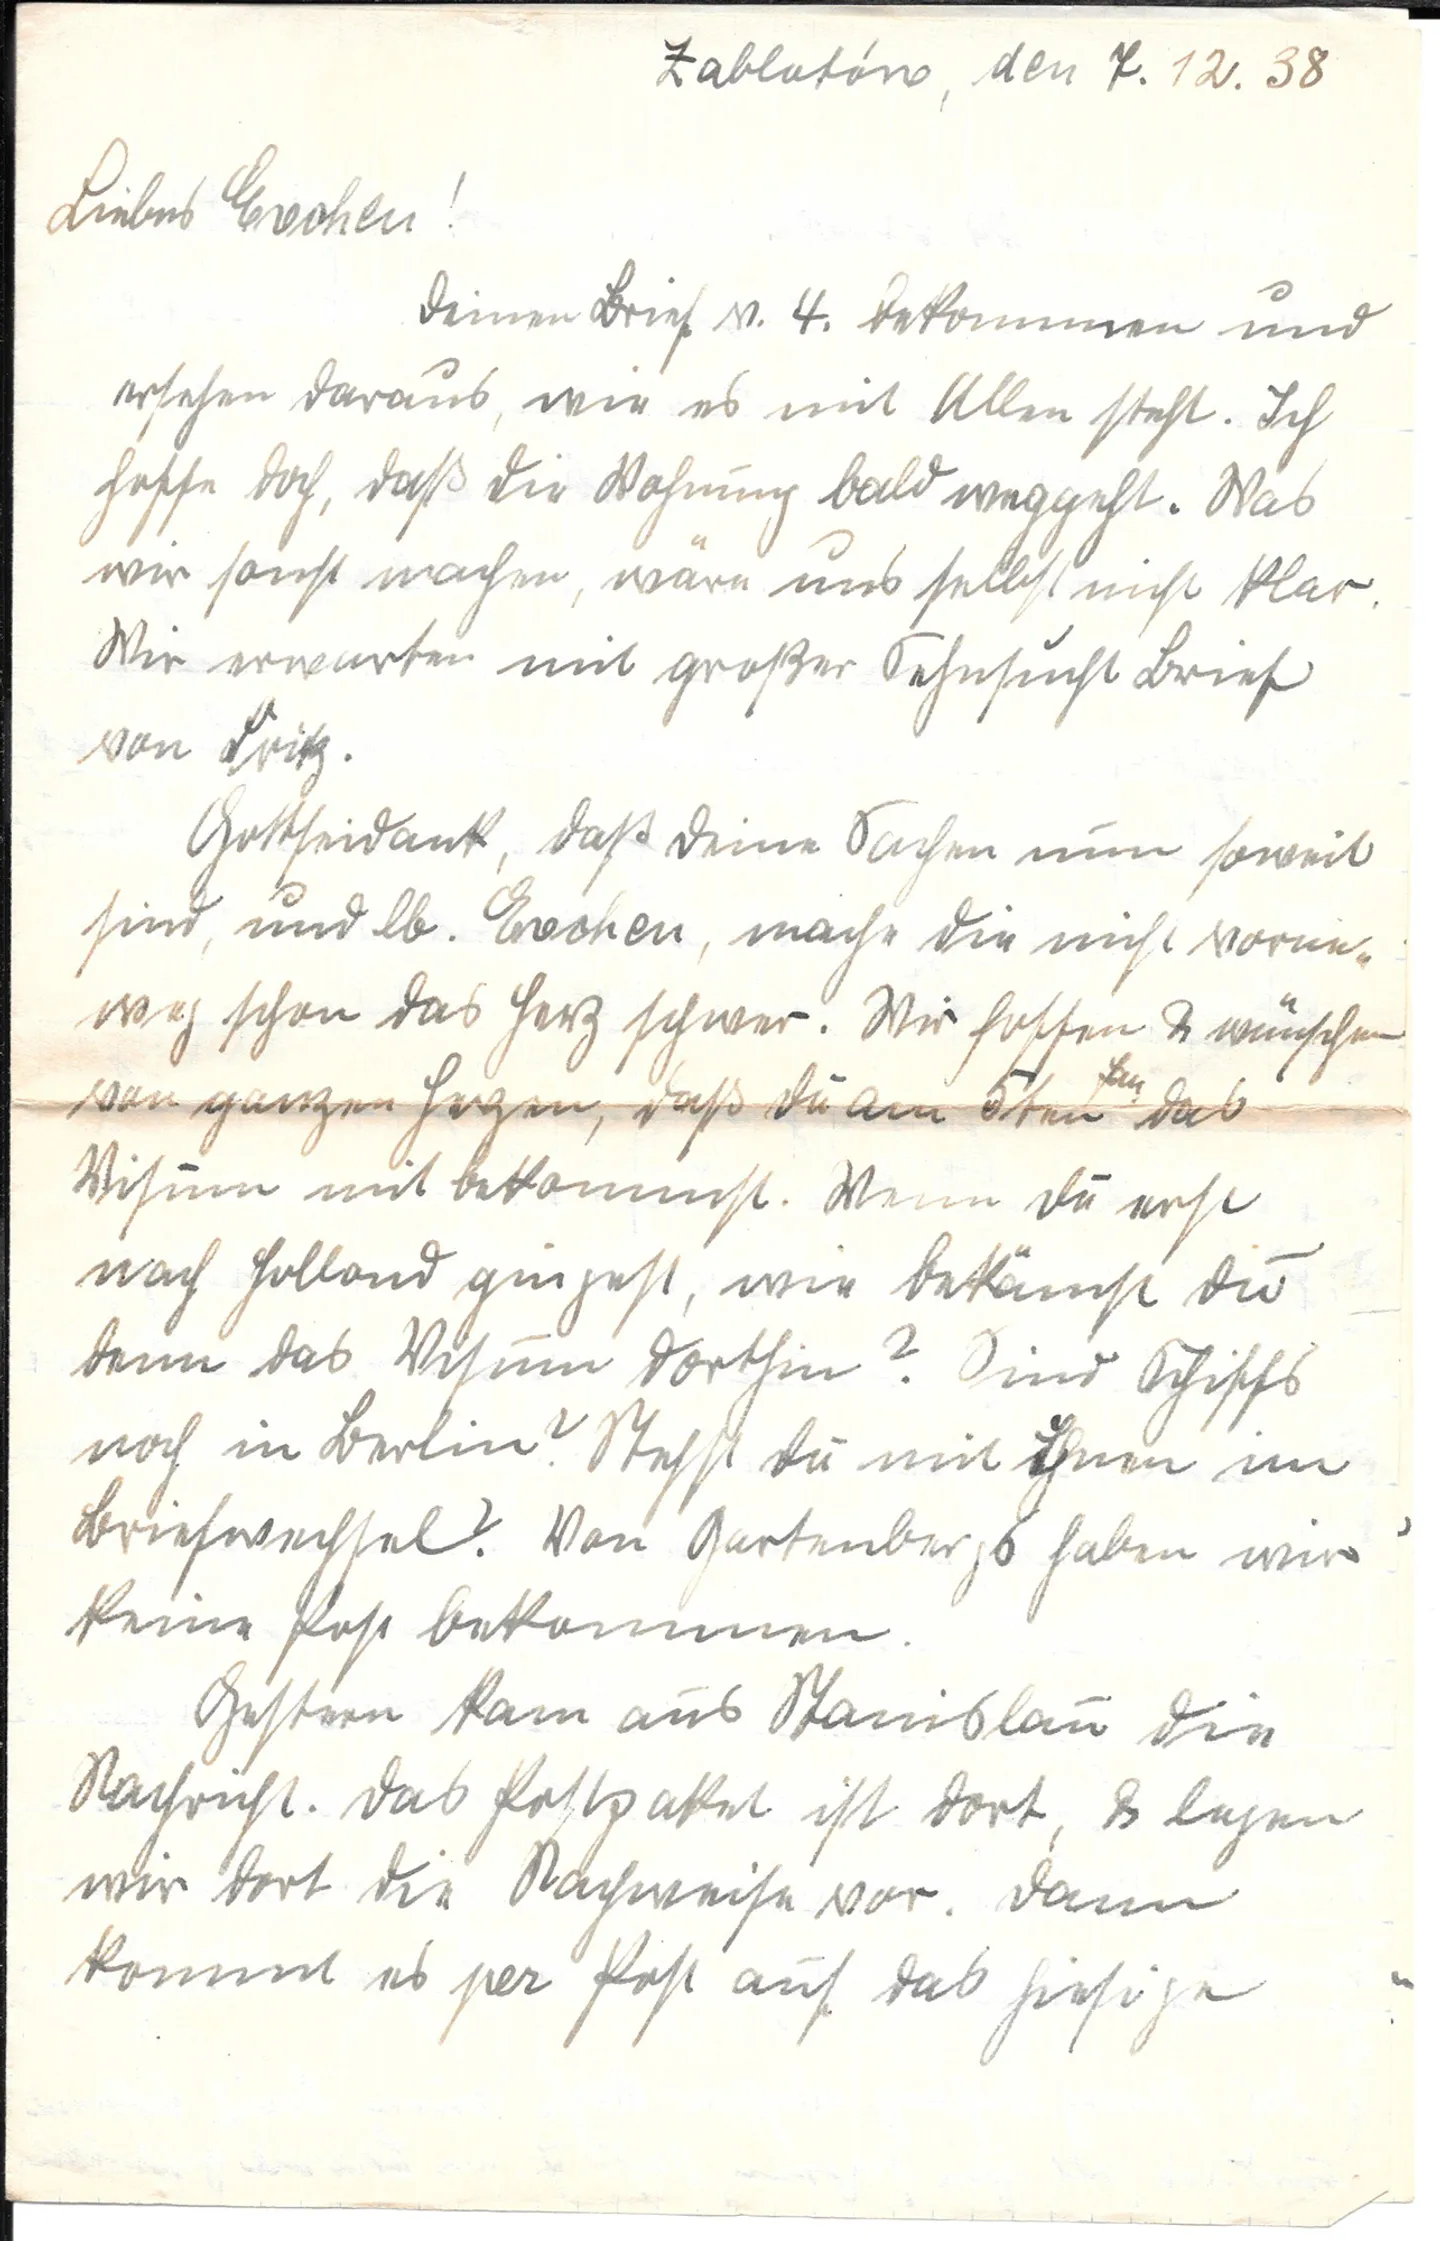 Zablotów, den 7. 12. 38
Liebes Evchen!
Deinen Brief v. 4. bekommen und
ersehen daraus, wie es mit Allen steht. Ich
hoffe doch, daß die Wohnung bald weggeht. Was
wir sonst machen, wäre uns selbst nicht klar.
Wir erwarten mit großer Sehnsucht Brief
von Fritz.
Gottseidank, daß deine Sachen nun soweit
sind, und lb. Evchen, mache dir nicht vorne-
weg schon das Herz schwer. Wir hoffen & wünschen
von ganzen Herzen, daß du am 5ten Jan. das
Visum mit bekommst. Wenn du erst
nach Holland gingest, wie bekämst du
denn das Visum dorthin? Sind Schiffs
noch in Berlin? Stehst du mit Ihnen im
Briefwechsel? Von Gartenbergs haben wir
keine Post bekommen.
Gestern kam aus Stanislau die
Nachricht. Das Postpaket ist dort, & legen
wir dort die Nachweise vor. Dann
kommt es per Post auf das hiesige